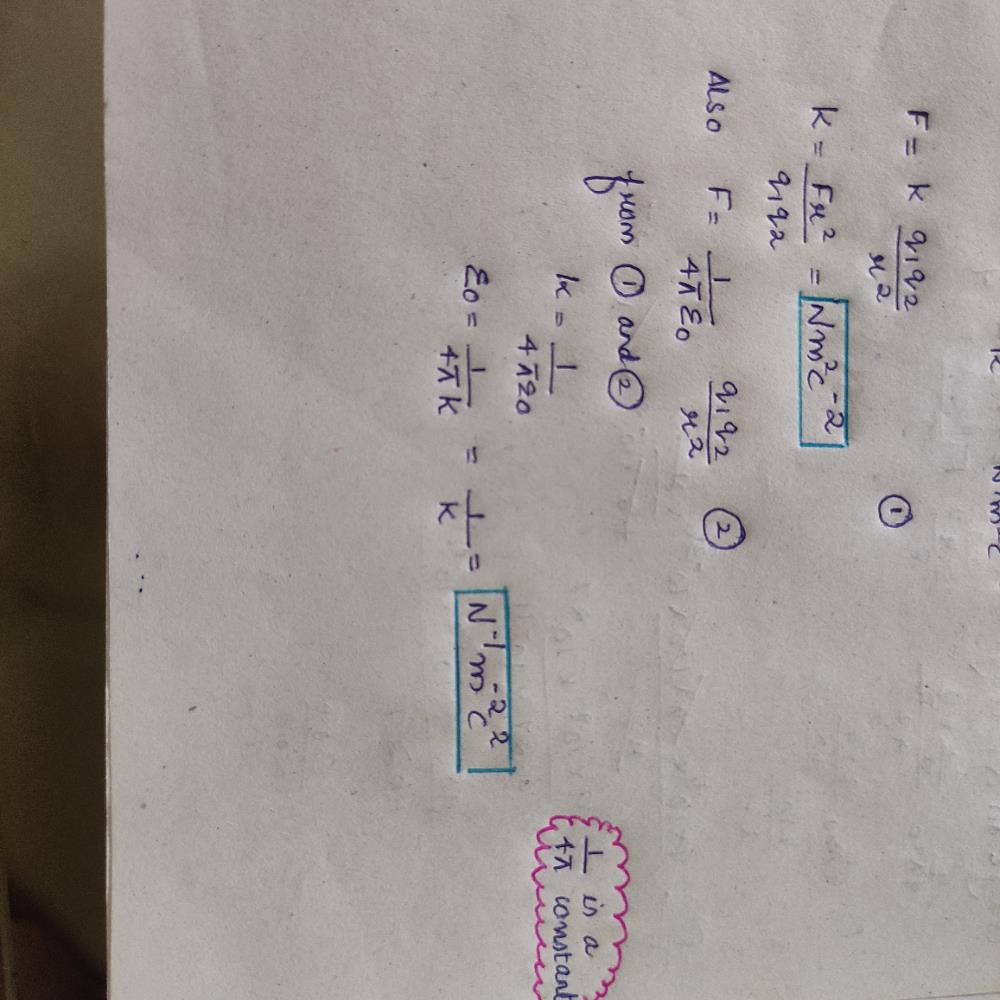 F = K q1q2/r2 ①
K = Fr²/q1q2 = Nm²C⁻²
ALSO F = 1/4πε0 q1q2/r2 ②
from ① and ②
K = 1/4πε0
ε0 = 1/4πK = 1/K = N⁻¹m⁻²C²
1/4π is a constant